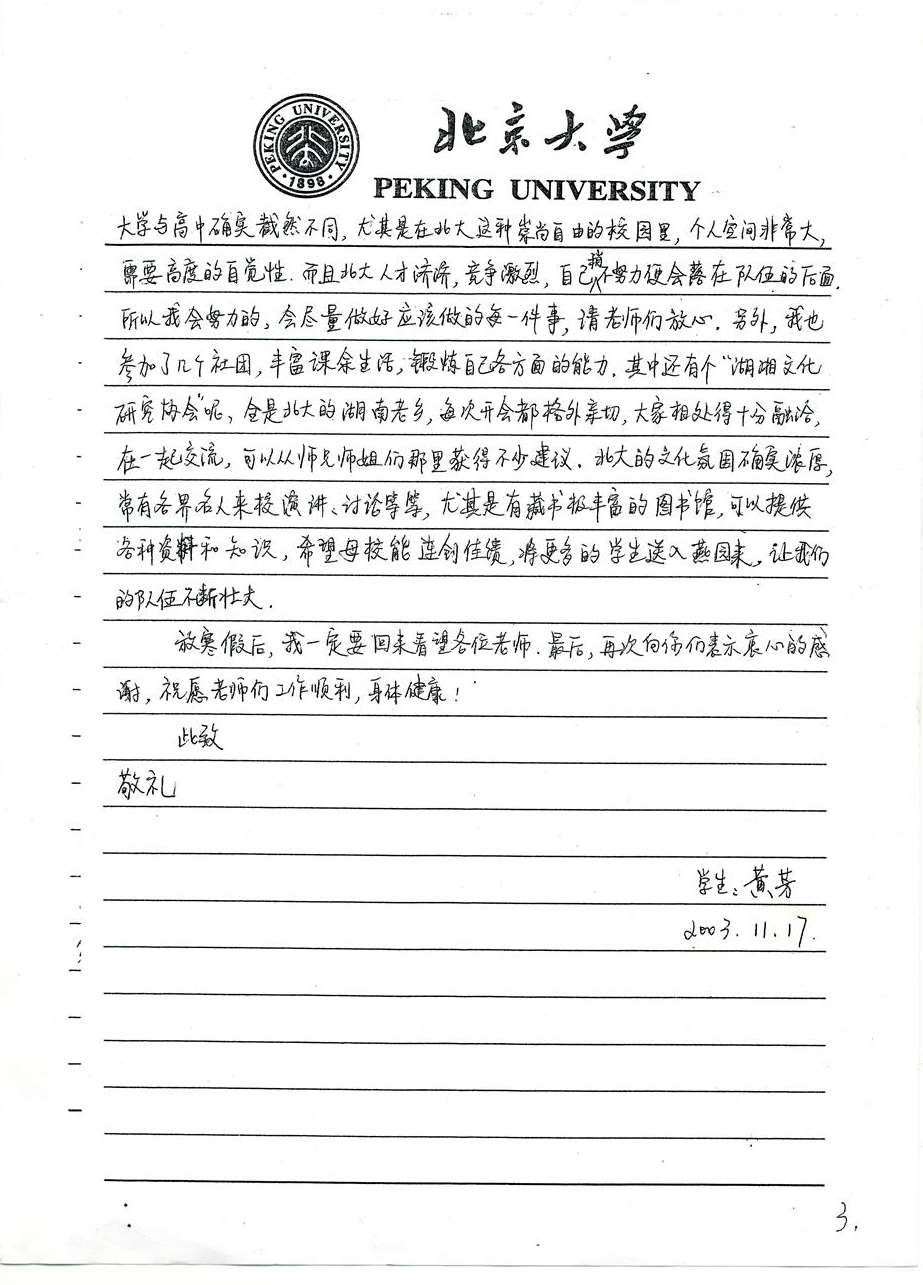 PEKING UNIVERSITY
1898
北京大学
PEKING UNIVERSITY
大学与高中确实截然不同，尤其是在北大这种崇尚自由的校园里，个人空间非常大，
需要高度的自觉性．而且北大人才济济，竞争激烈，自己稍不努力便会落在队伍的后面．
所以我会努力的，会尽量做好应该做的每一件事，请老师们放心．另外，我也
参加了几个社团，丰富课余生活，锻炼自己各方面的能力．其中还有个“湖湘文化
研究协会”呢、全是北大的湖南老乡，每次开会都格外亲切，大家相处得十分融洽，
在一起交流，可以从师兄师姐们那里获得不少建议．北大的文化氛围确实浓厚，
常有各界名人来校演讲、讨论等等，尤其是有藏书极丰富的图书馆，可以提供
各种资料和知识，希望母校能连创佳绩，将更多的学生送入燕园来，让我们
的队伍不断壮大．
放寒假后，我一定要回来看望各位老师．最后，再次向你们表示衷心的感
谢，祝愿老师们工作顺利，身体健康！
此致
敬礼
学生：黄芳
2003.11.17.
3.